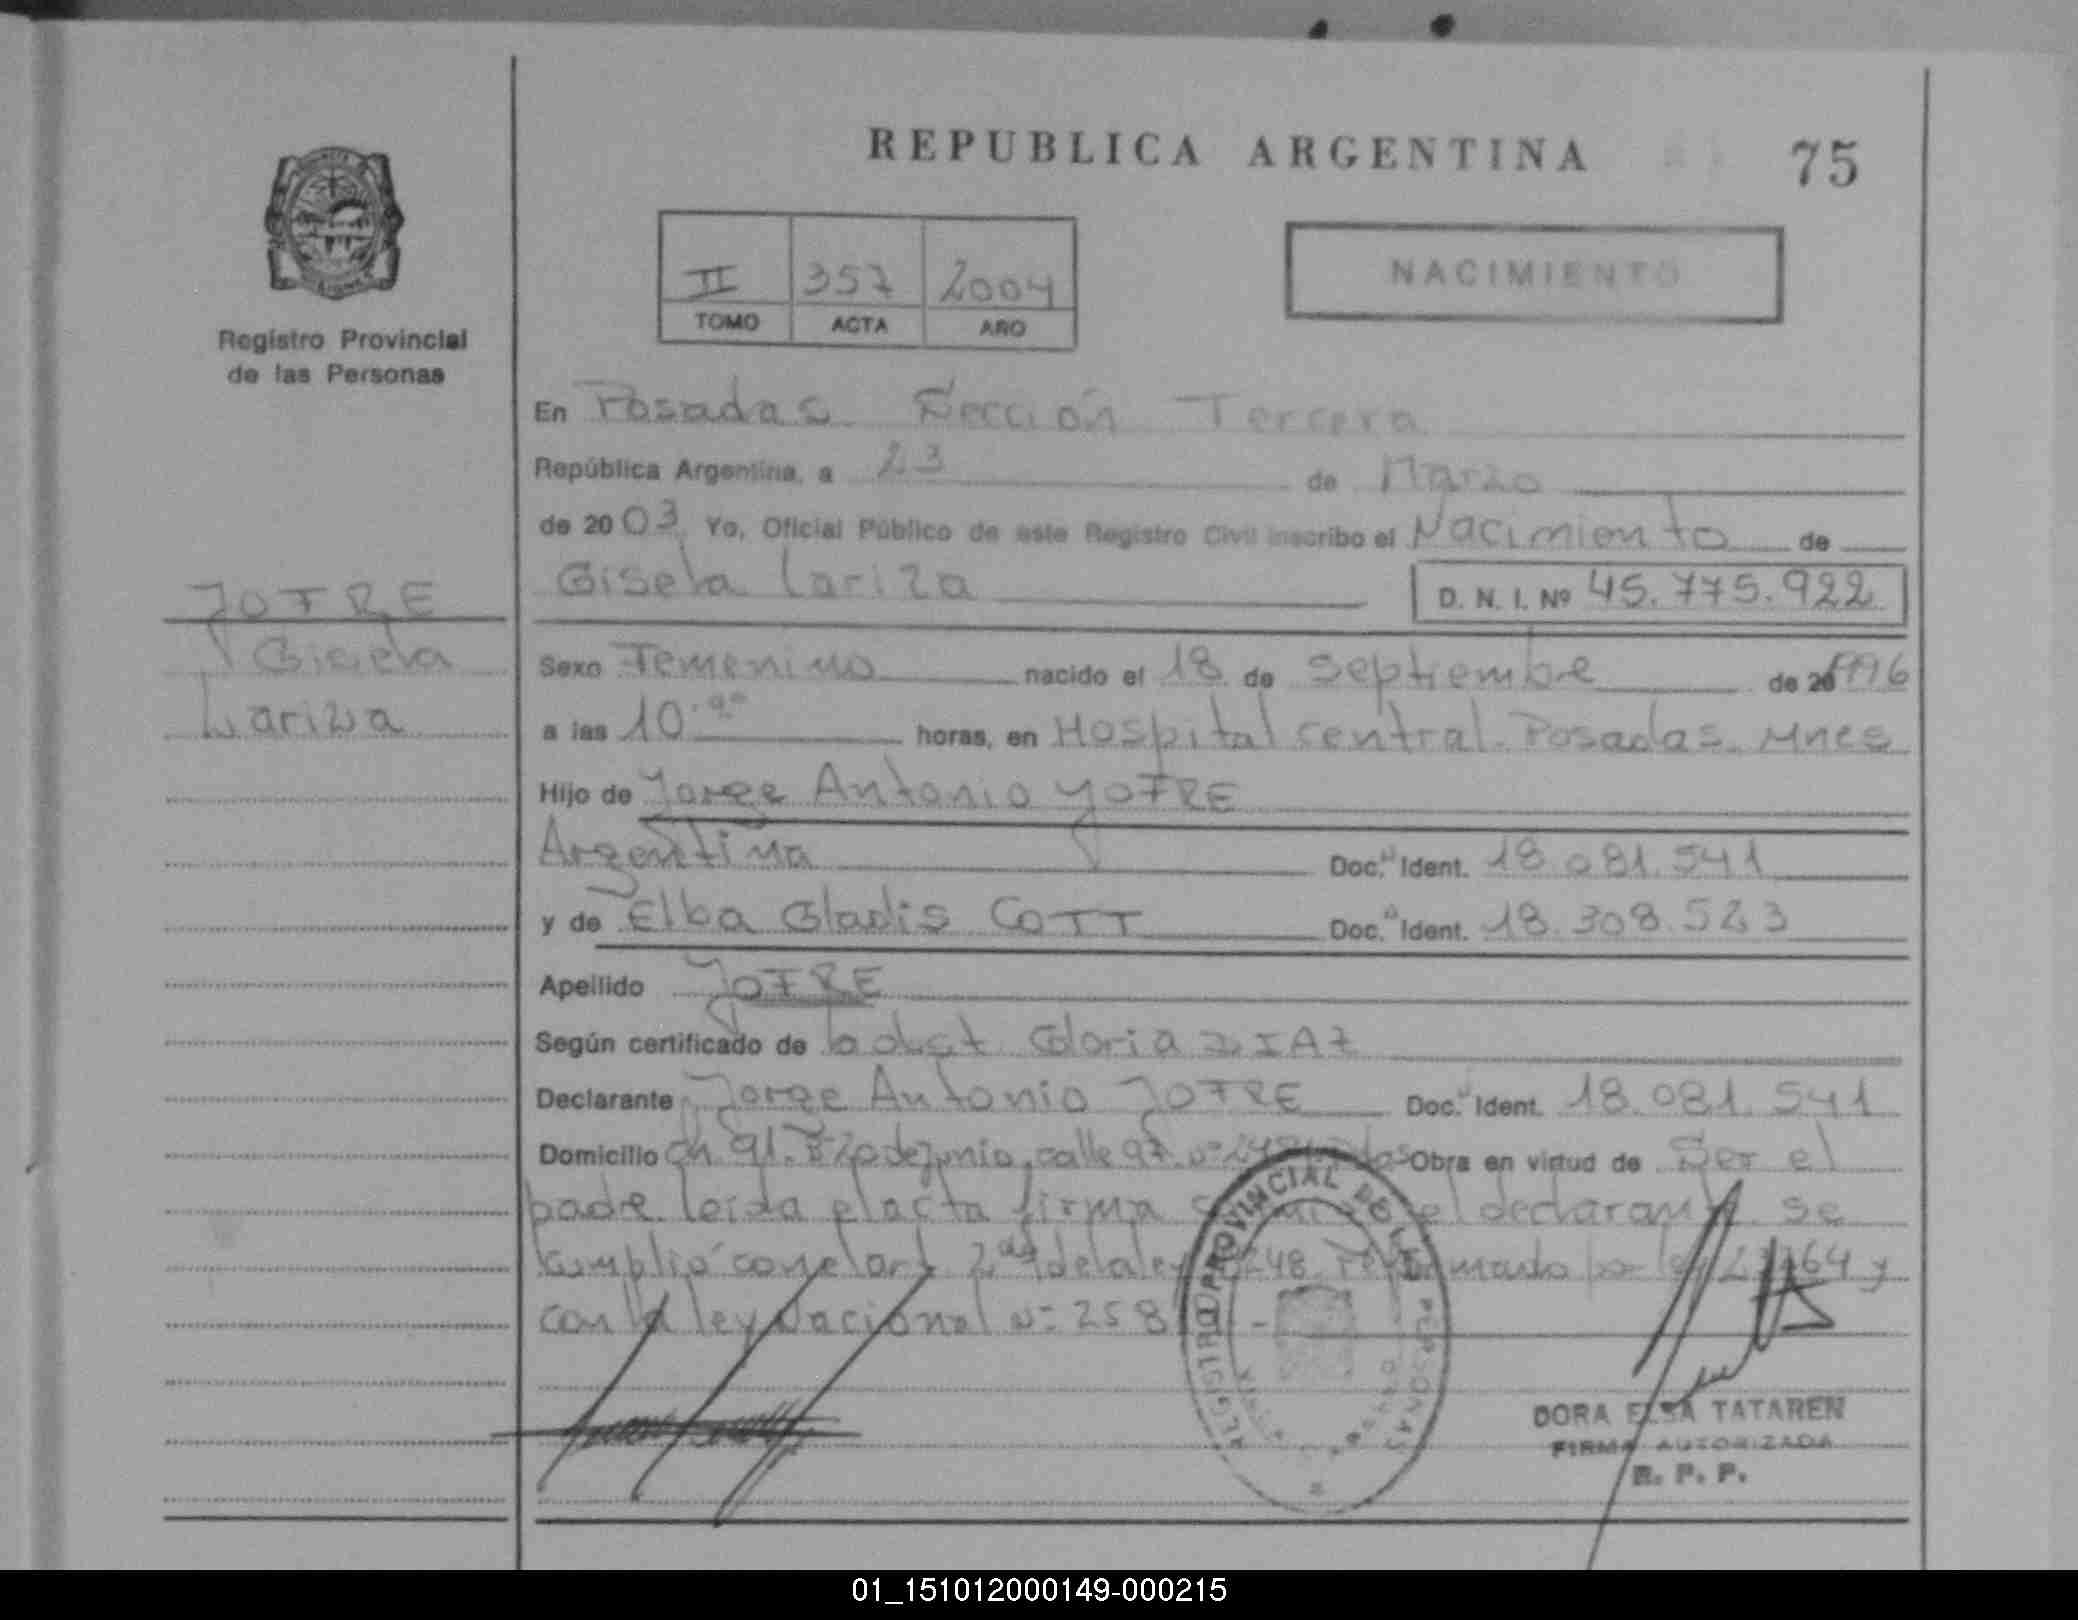 REPUBLICA ARGENTINA 75
II 357 2004
TOMO ACTA AÑO
NACIMIENTO
Registro Provincial
de las Personas
JOFRE
Gisela
Lariza
En Posadas Sección Tercera
República Argentina, a 23 de Marzo
de 2003. Yo, Oficial Público de este Registro Civil inscribo el Nacimiento de
Gisela Lariza D. N. I. Nº 45.775.922
Sexo Femenino nacido el 18 de septiembre de 20 1996
a las 10.00 horas, en Hospital central. Posadas. Mnes
Hijo de Jorge Antonio JOFRE
Argentina Doc. Ident. 18.081.541
y de Elba Gladis COTT Doc. Ident. 18.308.523
Apellido JOFRE
Según certificado de la obst Gloria DIAZ
Declarante Jorge Antonio JOFRE Doc. Ident. 18.081.541
Domicilio ch 91. Bº 20 de Junio, calle 97 nº Obra en virtud de Ser el
padre leida el acta firma el declarante se
cumplió con el art 2 de la ley 248 por ley y
con la ley Nacional nº 258
REGISTRO PROVINCIAL DE LAS PERSONAS
DORA ELSA TATAREN
FIRMA AUTORIZADA
R. P. P.
01_151012000149-000215